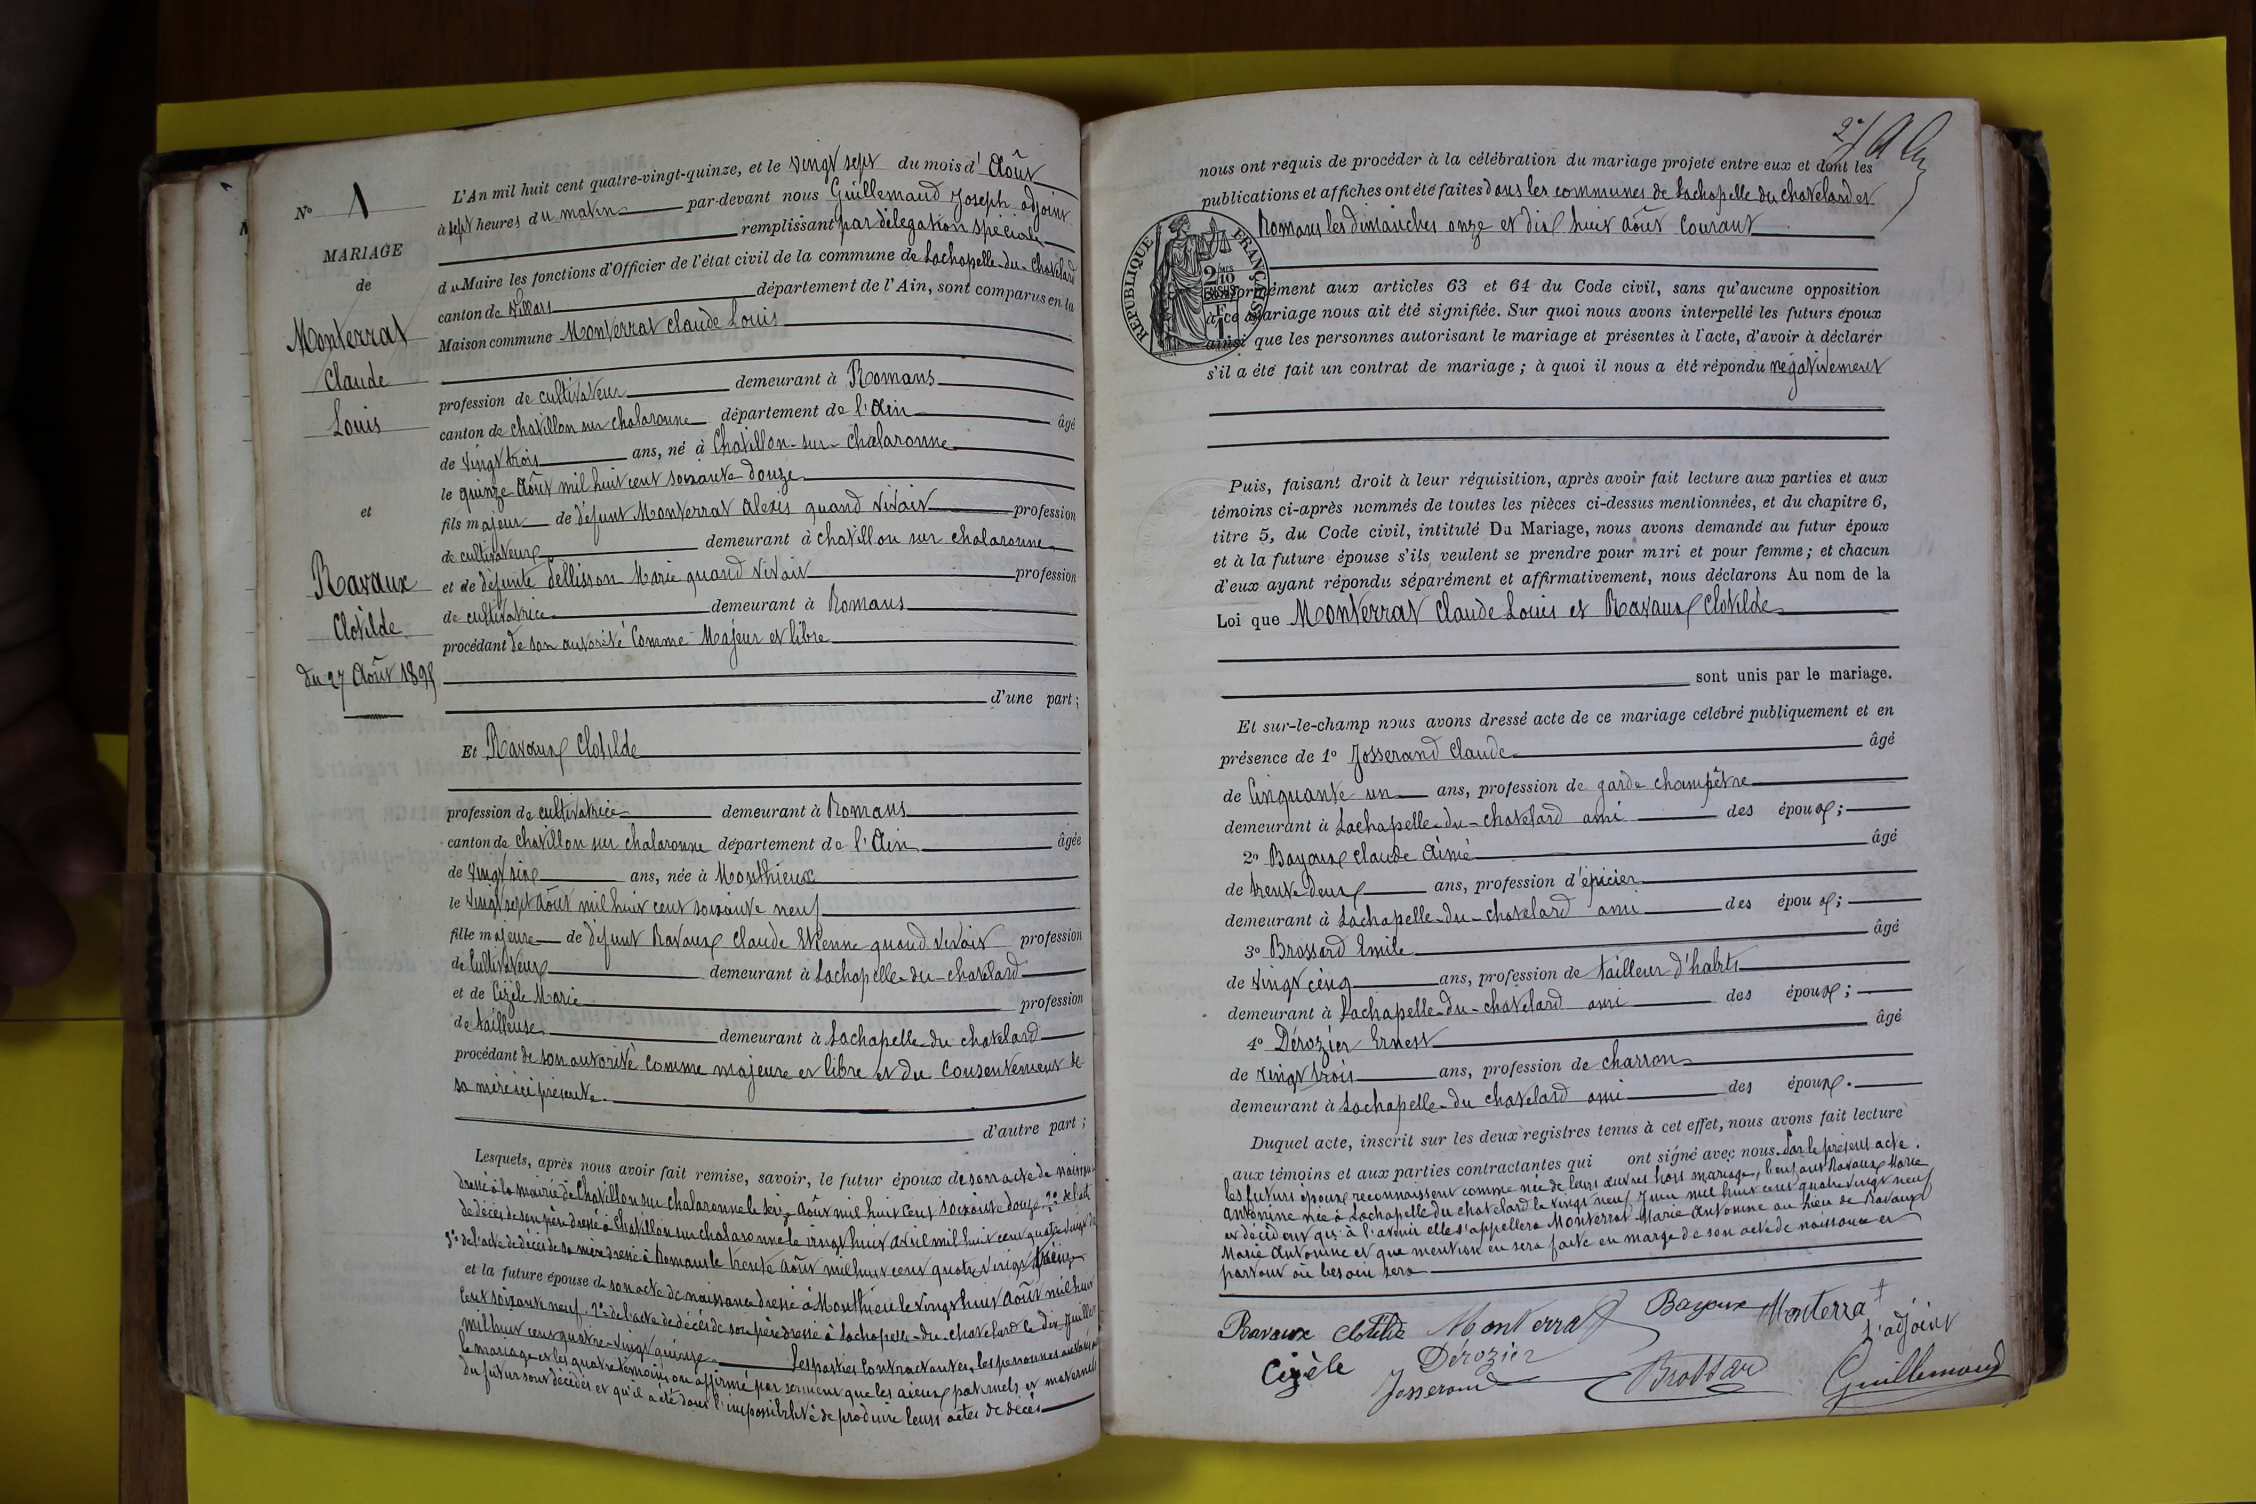 N° 1
MARIAGE
de
Monterrat
Claude
Louis
et
Ravaux
Clotilde
du 27 Août 1895
L'An mil huit cent quatre-vingt-quinze, et le vingt sept du mois d'Août
à sept heures du matin par-devant nous Guillemaud Joseph adjoint
remplissant par délégation spéciale
du Maire les fonctions d'Officier de l'état civil de la commune de Lachapelle-du-Chatelard
canton de Villars département de l'Ain, sont comparus en la
Maison commune Monterrat Claude Louis
profession de cultivateur demeurant à Romans
canton de chatillon sur chalaronne département de l'Ain âgé
de vingt trois ans, né à Chatillon-sur-Chalaronne
le quinze Août mil huit cent soixante douze
fils majeur de défunt Monterrat Alexis quand vivait profession
de cultivateur demeurant à chatillon sur chalaronne
et de défunte Pellisson Marie quand vivait profession
de cultivatrice demeurant à Romans
procédant de son autorité comme Majeur et libre
d'une part;
Et Ravaux Clotilde
profession de cultivatrice demeurant à Romans
canton de chatillon sur chalaronne département de l'Ain âgée
de vingt six ans, née à Monthieux
le vingt sept Août mil huit cent soixante neuf
fille majeure de défunt Ravaux Claude Etienne quand vivait profession
de cultivateur demeurant à Lachapelle-du-chatelard
et de Cizèle Marie profession
de tailleuse demeurant à Lachapelle du chatelard
procédant de son autorité comme majeure et libre et du consentement de
sa mère ici présente.
d'autre part;
Lesquels, après nous avoir fait remise, savoir, le futur époux de son acte de naissance
dressé à la mairie de Chatillon sur chalaronne le seize Août mil huit cent soixante douze. 2° de l'acte
de décès de son père dressé à Chatillon sur chalaronne le vingt huit avril mil huit cent quatre vingt
3° de l'acte de décès de sa mère dressé à Romans le trente Août mil huit cent quatre vingt
et la future épouse de son acte de naissance dressé à Monthieu le vingt huit Août mil huit
cent soixante neuf. 2° de l'acte de décès de son père dressé à Lachapelle-du-chatelard le dix Juillet
mil huit cent quatre-vingt quinze. Les parties contractantes, les personnes autorisant
le mariage et les quatre témoins ont affirmé par serment que les aieux paternels et maternels
du futur sont décédés et qu'il a été dans l'impossibilité de produire leurs actes de décès
nous ont requis de procéder à la célébration du mariage projeté entre eux et dont les
publications et affiches ont été faites dans les communes de Lachapelle du chatelard et
Romans les dimanches onze et dix huit Août courant
RÉPUBLIQUE FRANÇAISE
conformément aux articles 63 et 64 du Code civil, sans qu'aucune opposition
à ce mariage nous ait été signifiée. Sur quoi nous avons interpellé les futurs époux
ainsi que les personnes autorisant le mariage et présentes à l'acte, d'avoir à déclarer
s'il a été fait un contrat de mariage; à quoi il nous a été répondu négativement
Puis, faisant droit à leur réquisition, après avoir fait lecture aux parties et aux
témoins ci-après nommés de toutes les pièces ci-dessus mentionnées, et du chapitre 6,
titre 5, du Code civil, intitulé Du Mariage, nous avons demandé au futur époux
et à la future épouse s'ils veulent se prendre pour mari et pour femme; et chacun
d'eux ayant répondu séparément et affirmativement, nous déclarons Au nom de la
Loi que Monterrat Claude Louis et Ravaux Clotilde
sont unis par le mariage.
Et sur-le-champ nous avons dressé acte de ce mariage célébré publiquement et en
présence de 1° Josserand Claude âgé
de Cinquante un ans, profession de garde champêtre
demeurant à Lachapelle-du-chatelard ami des époux;
2° Bayoux Claude Aimé âgé
de trente deux ans, profession d'épicier
demeurant à Lachapelle-du-chatelard ami des époux;
3° Brossard Emile âgé
de vingt cinq ans, profession de tailleur d'habits
demeurant à Lachapelle-du-chatelard ami des époux;
4° Dérozier Ernest âgé
de vingt trois ans, profession de charron
demeurant à Lachapelle-du chatelard ami des époux.
Duquel acte, inscrit sur les deux registres tenus à cet effet, nous avons fait lecture
aux témoins et aux parties contractantes qui ont signé avec nous. Par le présent acte.
les futurs époux reconnaissent comme née de leurs œuvres hors mariage, l'enfant Ravaux Marie
Antonine née à Lachapelle du chatelard le vingt neuf Juin mil huit cent quatre vingt neuf
et décident qu'à l'avenir elle s'appellera Monterrat Marie Antonine au lieu de Ravaux
Marie Antonine et que mention en sera faite en marge de son acte de naissance et
partout où besoin sera
Ravaux Clotilde Monterrat Bayoux Monterrat
L'adjoint
Cizèle Dérozier
Josserand Brossard Guillemaud